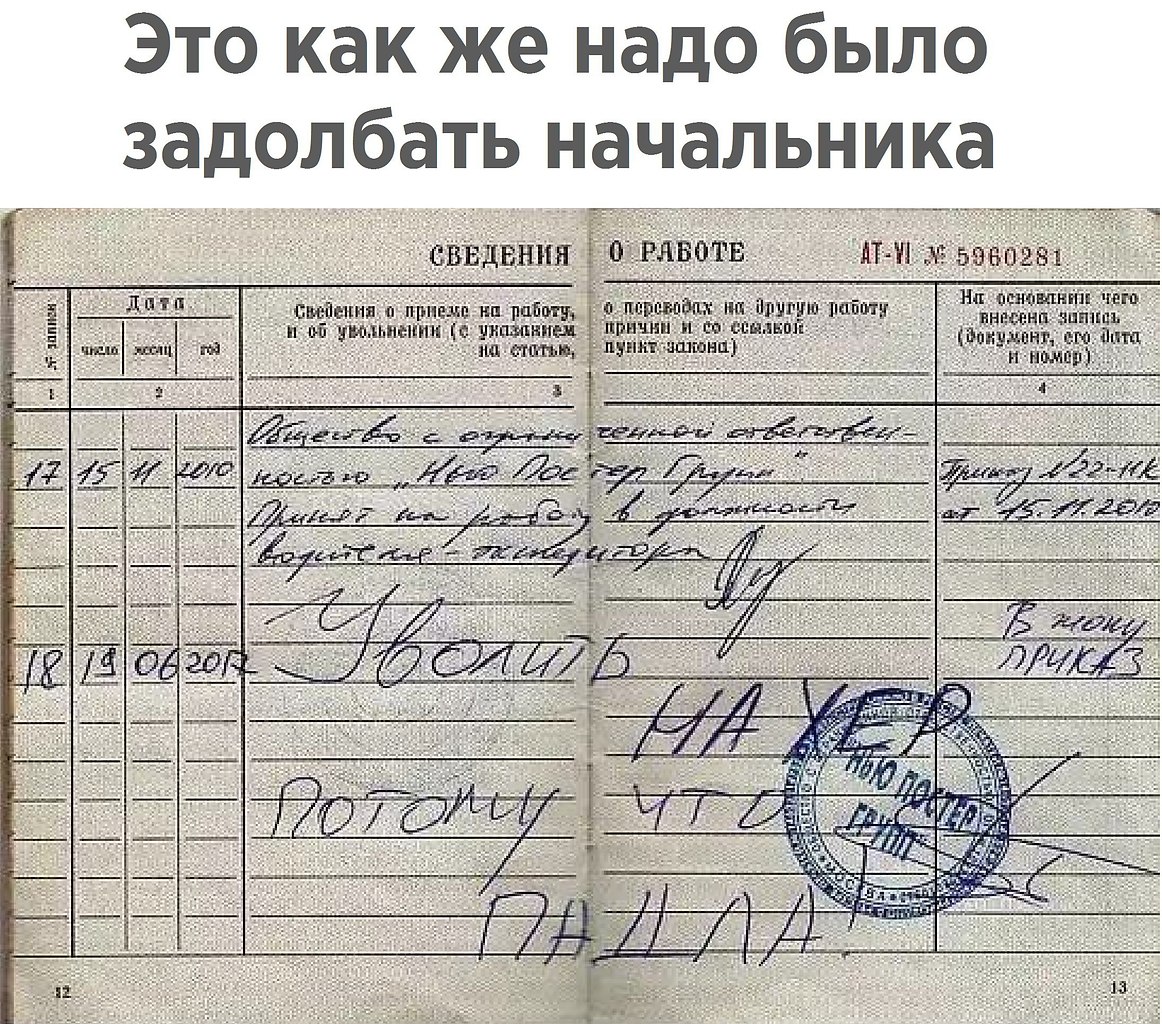 Это как же надо было
задолбать начальника
СВЕДЕНИЯ О РАБОТЕ АТ-VI № 5960281
№ записи
Дата
число месяц год
Сведения о приеме на работу, о переводах на другую работу
и об увольнении (с указанием причин и со ссылкой
на статью, пункт закона)
На основании чего
внесена запись
(документ, его дата
и номер)
1 2 3 4
Общество с ограниченной ответствен-
17 15 11 2010 ностью „Нью Постер Групп"
Приказ №22-11к
от 15.11.2010
Принят на работу в должности
водителя-экспедитора
18 19 06 2012 Уволить
В жопу
ПРИКАЗ
НАХЕР
ПОТОМУ ЧТО
ПАДЛА!
НЬЮ ПОСТЕР
ГРУПП
МОСКВА
12 13